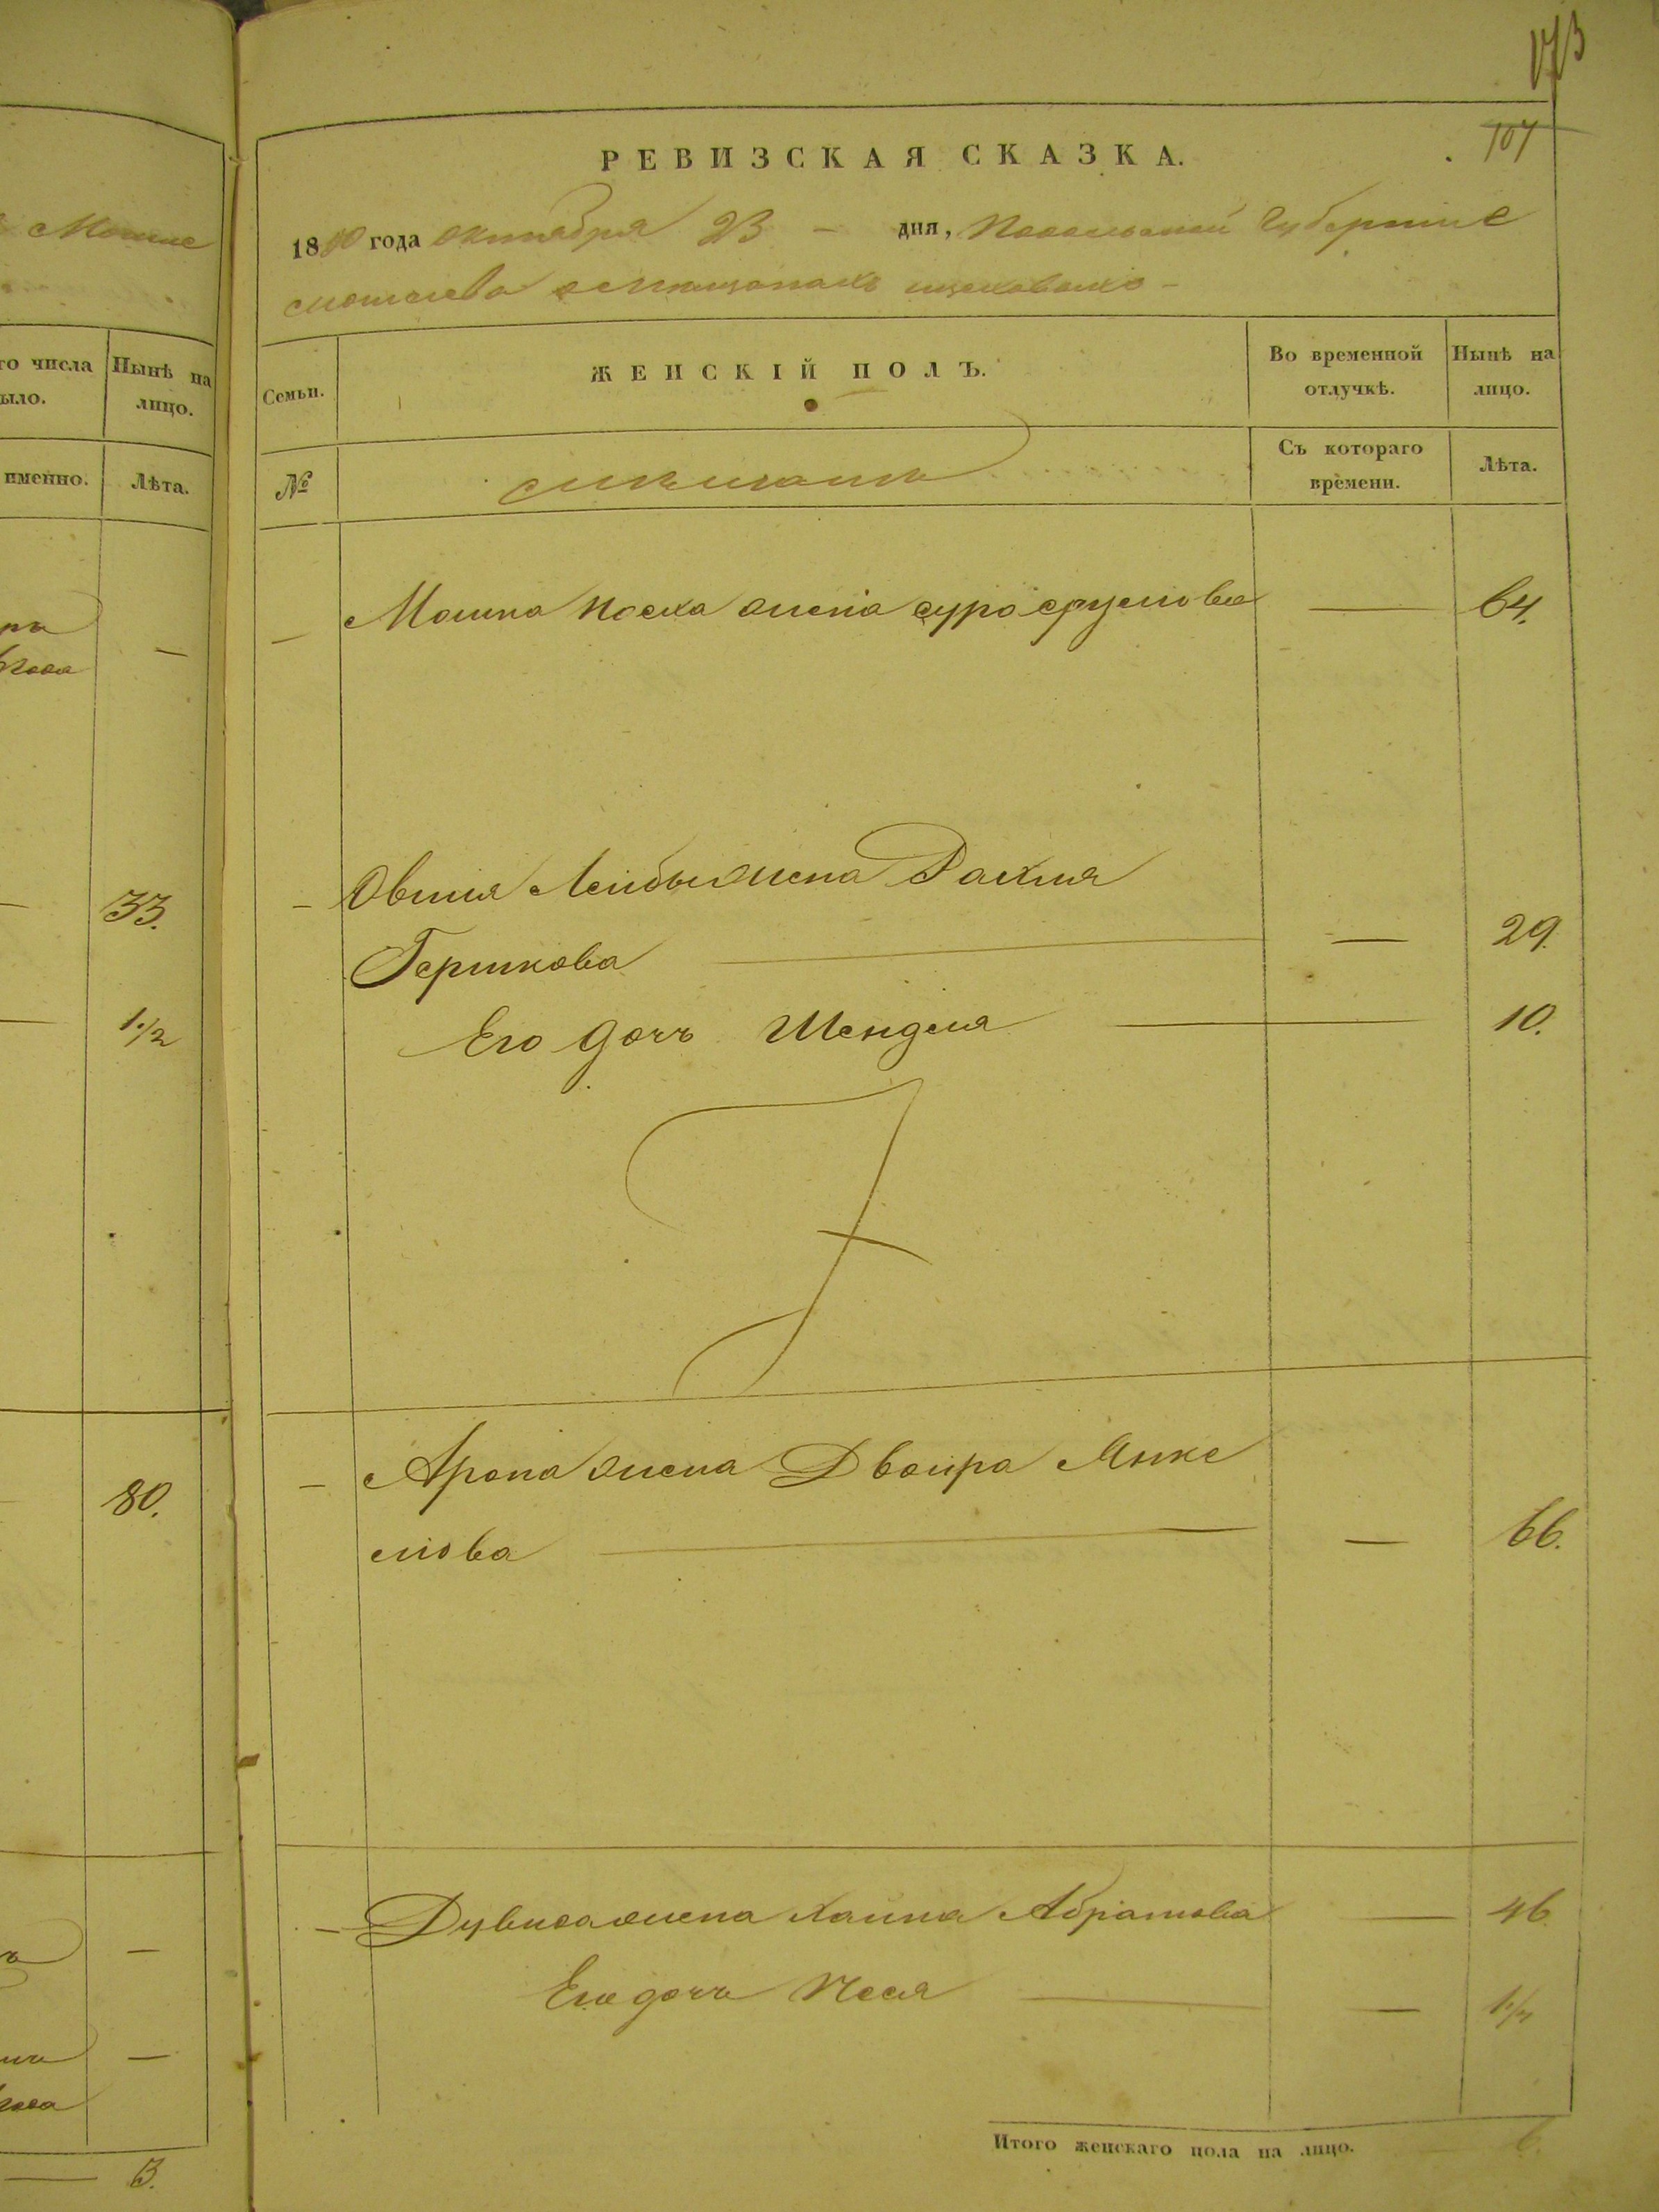 173
107
РЕВИЗСКАЯ СКАЗКА.
1850 года октября 23 — дня, Подольской Губернии
о мещанахъ
Семьи.
ЖЕНСКІЙ ПОЛЪ.
Во временной отлучкѣ.
Нынѣ на лицо.
№
Съ котораго времени.
Лѣта.
— Мошка Иоска жена Сура Срулиова — 64.
— Овшия Лейбы жена Рахля
Гершкова — — 29.
Его дочь Шендля — 10.
— Арона жена Двойра Янке
лиова — — 66.
— Дувида жена Хайка Абрамова — 46
Его дочь Песя — — 1./4
Итого женскаго пола на лицо. 6.
го числа
ыло.
Нынѣ на
лицо.
именно.
Лѣта.
—
— 33.
— 1./2
80.
—
—
— 3.